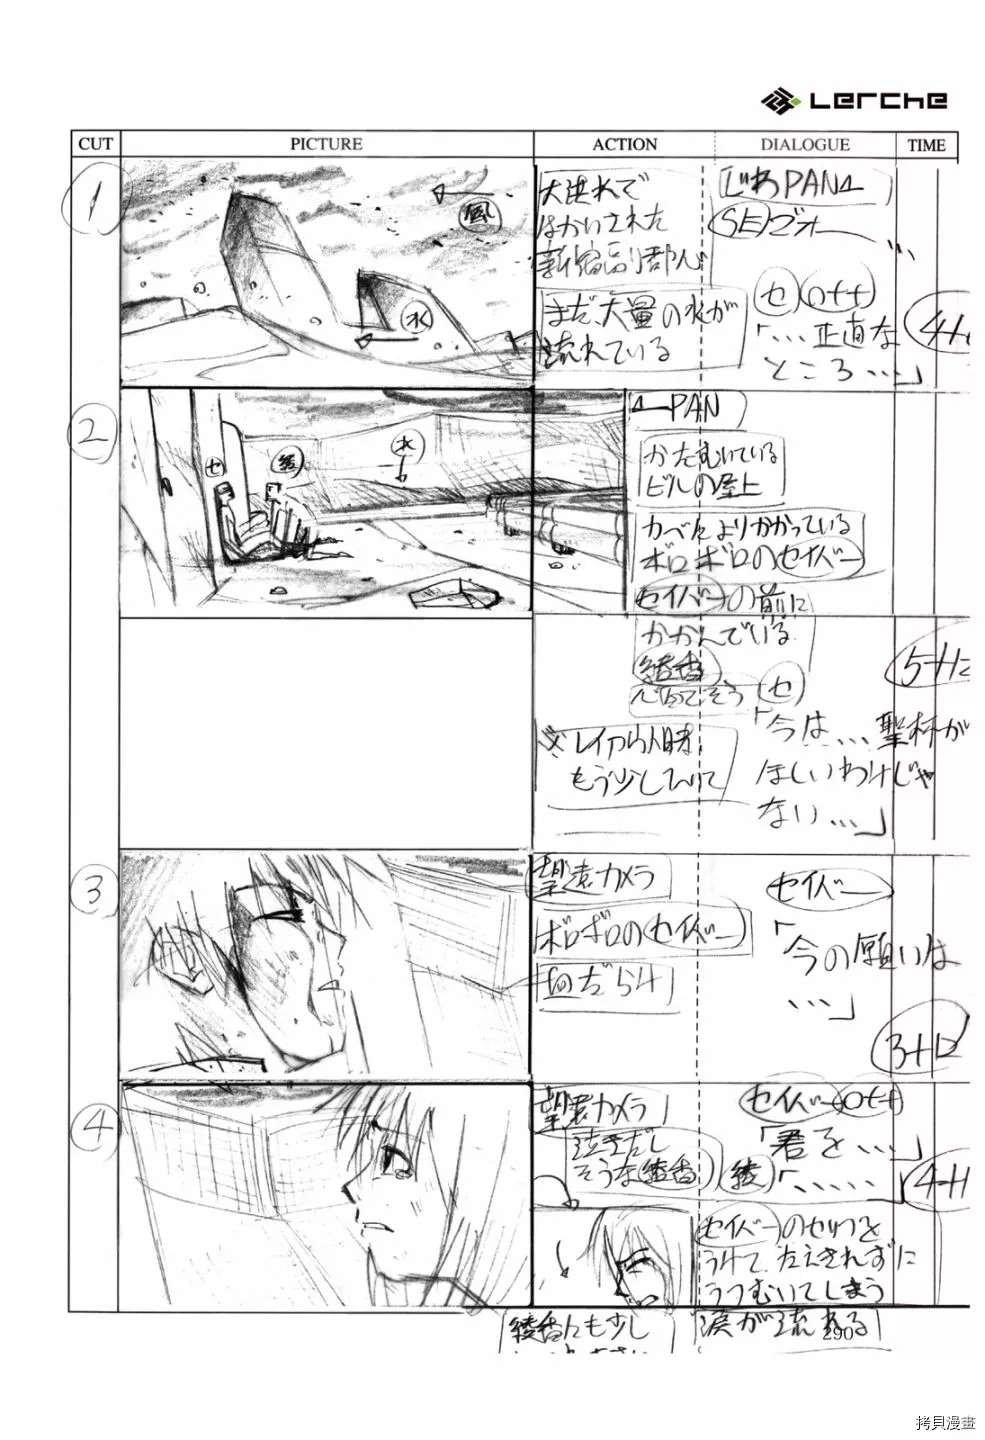 Lerche
CUT
PICTURE
ACTION
DIALOGUE
TIME
1
風
水
大洪水で
はかいされた
新宿
まだ、大量の水が
流れている
じわPAN
(SE)ゴオー
セ (Off)
「…正直な
ところ…」
2
セ
綾
水
PAN
かたむいている
ビルの屋上
かべによりかかっている
ボロボロのセイバー
セイバーの前に
かがんでいる
綾香
心配そう
セ
「今は…聖杯が
ほしいわけじゃ
ない…」
もう少し
3
望遠カメラ
ボロボロのセイバー
血だらけ
セイバー
「今の願いは
…」
3+12
4
望遠カメラ
泣きだし
そうな綾香
セイバー(Off)
「君を…」
綾
「……」
セイバーのセリフを
うけて、たえきれずに
うつむいてしまう
涙が流れる
綾香にも少し
290
拷貝漫畫